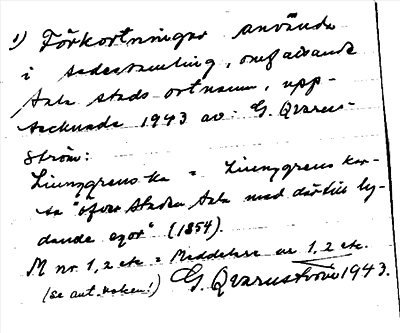 1) Förkortningar använda
i sedesamling, omfattande
Sala stads ortnamn, upp-
tecknade 1943 av G. Qvarn-
ström:
Ljunggrens ka = Ljunggrens kar-
ta "öfver Staden Sala med därtill ly-
dande egor" (1854).
M nr 1, 2 etc = Meddelare nr 1, 2 etc.
(se ant. boken!) G. Qvarnström 1943.